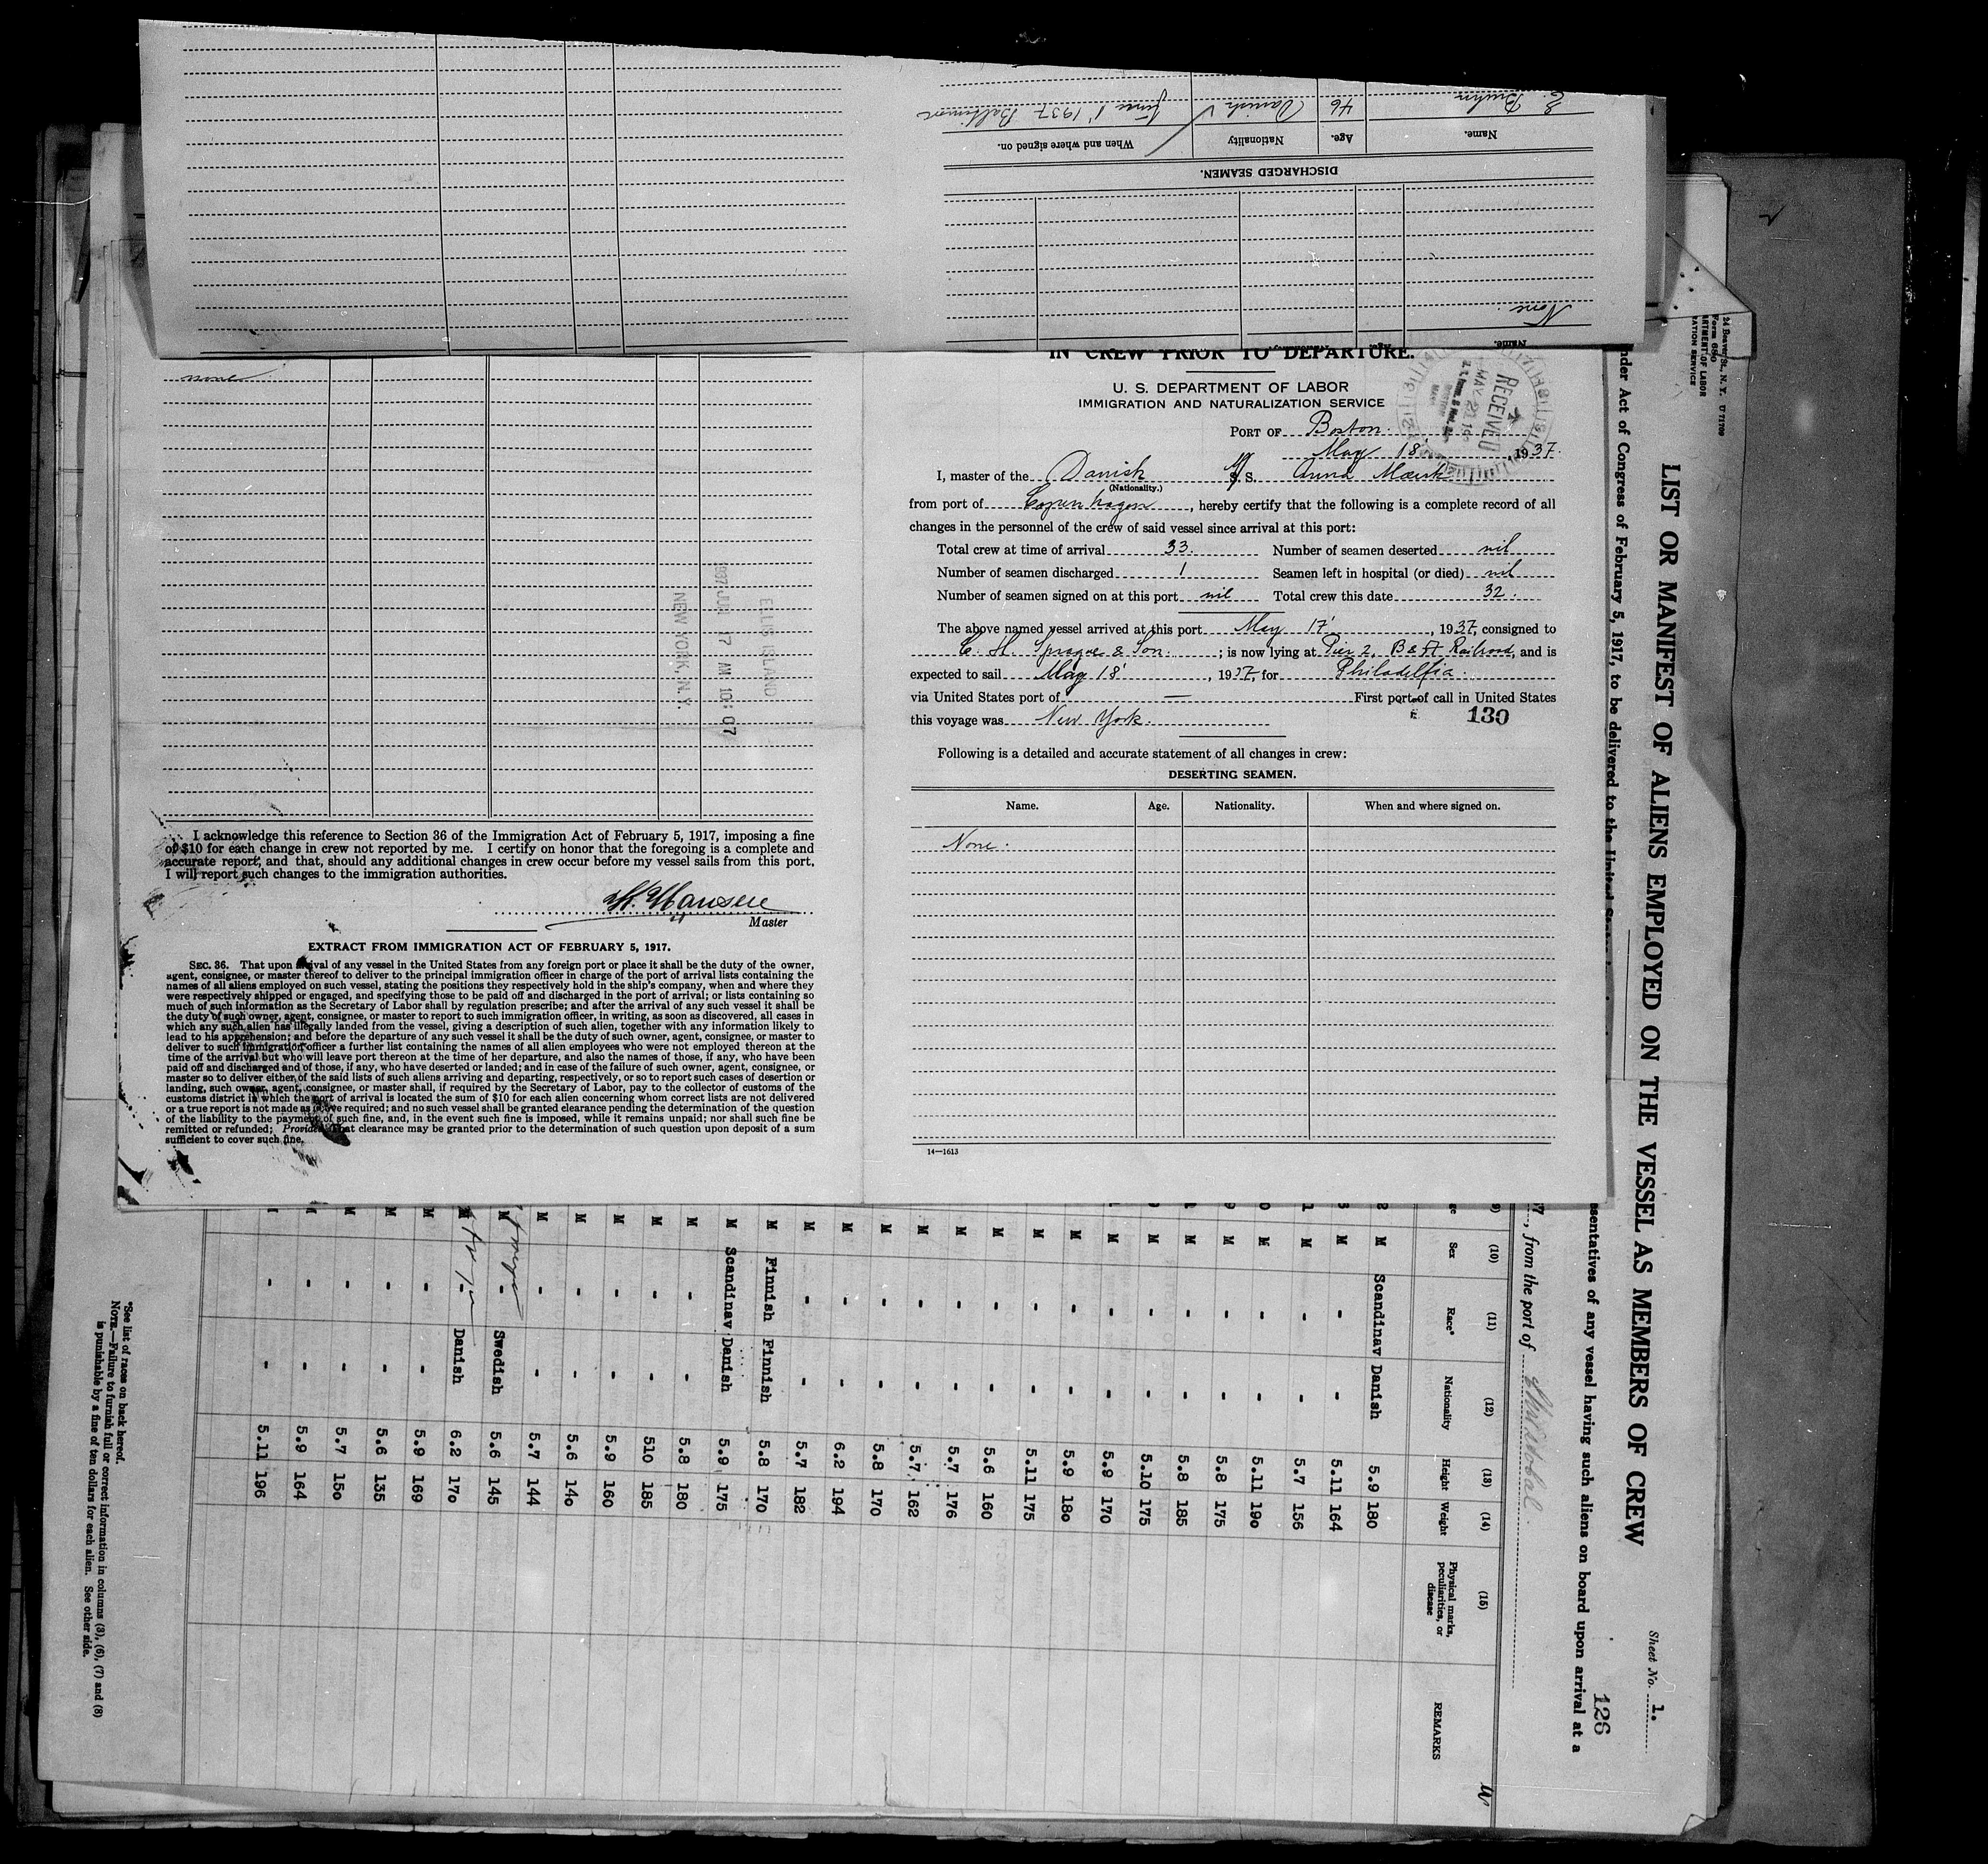 E. Bruhn 46 Danish June 1' 1937 Baltimore
Name. Age. Nationality When and where signed on.
DISCHARGED SEAMEN.
None.
Name.
none
IN CREW PRIOR TO DEPARTURE.
U. S. DEPARTMENT OF LABOR
IMMIGRATION AND NATURALIZATION SERVICE
RECEIVED
MAY 21
PORT OF Boston.
May 18', 1937.
I, master of the Danish M/S. Anna Mærsk
(Nationality.)
from port of Copenhagen, hereby certify that the following is a complete record of all
changes in the personnel of the crew of said vessel since arrival at this port:
Total crew at time of arrival 33. Number of seamen deserted nil
Number of seamen discharged 1 Seamen left in hospital (or died) nil
Number of seamen signed on at this port nil Total crew this date 32.
The above named vessel arrived at this port May 17', 1937, consigned to
C. H. Sprague & Son. ; is now lying at Pier 2, B & A Railroad, and is
expected to sail May 18', 1937, for Philadelfia.
via United States port of — First port of call in United States
this voyage was New York.
130
Following is a detailed and accurate statement of all changes in crew:
DESERTING SEAMEN.
Name. Age. Nationality. When and where signed on.
None.
14—1613
ELLIS ISLAND
1937 JUN 17 AM 10: 07
NEW YORK, N. Y.
I acknowledge this reference to Section 36 of the Immigration Act of February 5, 1917, imposing a fine
of $10 for each change in crew not reported by me. I certify on honor that the foregoing is a complete and
accurate report, and that, should any additional changes in crew occur before my vessel sails from this port,
I will report such changes to the immigration authorities.
Hansen
Master
EXTRACT FROM IMMIGRATION ACT OF FEBRUARY 5, 1917.
SEC. 36. That upon arrival of any vessel in the United States from any foreign port or place it shall be the duty of the owner,
agent, consignee, or master thereof to deliver to the principal immigration officer in charge of the port of arrival lists containing the
names of all aliens employed on such vessel, stating the positions they respectively hold in the ship's company, when and where they
were respectively shipped or engaged, and specifying those to be paid off and discharged in the port of arrival; or lists containing so
much of such information as the Secretary of Labor shall by regulation prescribe; and after the arrival of any such vessel it shall be
the duty of such owner, agent, consignee, or master to report to such immigration officer, in writing, as soon as discovered, all cases in
which any such alien has illegally landed from the vessel, giving a description of such alien, together with any information likely to
lead to his apprehension; and before the departure of any such vessel it shall be the duty of such owner, agent, consignee, or master to
deliver to such immigration officer a further list containing the names of all alien employees who were not employed thereon at the
time of the arrival but who will leave port thereon at the time of her departure, and also the names of those, if any, who have been
paid off and discharged and of those, if any, who have deserted or landed; and in case of the failure of such owner, agent, consignee, or
master so to deliver either of the said lists of such aliens arriving and departing, respectively, or so to report such cases of desertion or
landing, such owner, agent, consignee, or master shall, if required by the Secretary of Labor, pay to the collector of customs of the
customs district in which the port of arrival is located the sum of $10 for each alien concerning whom correct lists are not delivered
or a true report is not made as above required; and no such vessel shall be granted clearance pending the determination of the question
of the liability to the payment of such fine, and, in the event such fine is imposed, while it remains unpaid; nor shall such fine be
remitted or refunded; Provided, That clearance may be granted prior to the determination of such question upon deposit of a sum
sufficient to cover such fine.
24 Beaver St., N. Y. U 71709
Form 680
ARTMENT OF LABOR
RATION SERVICE
Sheet No. 1.
LIST OR MANIFEST OF ALIENS EMPLOYED ON THE VESSEL AS MEMBERS OF CREW
126
nder Act of Congress of February 5, 1917, to be delivered to the United
sentatives of any vessel having such aliens on board upon arrival at a
, from the port of
(10) (11) (12) (13) (14) (15)
Sex Race* Nationality Height Weight Physical marks, peculiarities, or disease REMARKS
M Scandinav Danish 5.9 180
M - - 5.11 164
M - - 5.7 156
M - - 5.11 190
M - - 5.8 175
M - - 5.8 185
M - - 5.10 175
M - - 5.9 170
M - - 5.9 180
M - - 5.11 175
M - - 5.6 160
M - - 5.7 176
M - - 5.7 162
M - - 5.8 170
M - - 6.2 194
M - - 5.7 182
M Finnish Finnish 5.8 170
M Scandinav Danish 5.9 175
M - - 5.8 180
M - - 510 185
M - - 5.9 160
M - - 5.6 140
M - - 5.7 144
M - Swedish 5.6 145
M - Danish 6.2 170
M - - 5.9 169
M - - 5.6 135
M - - 5.7 150
M - - 5.9 164
- - 5.11 196
*See list of races on back hereof.
NOTE.—Failure to furnish full or correct information in columns (3), (6), (7) and (8)
is punishable by a fine of ten dollars for each alien. See other side.